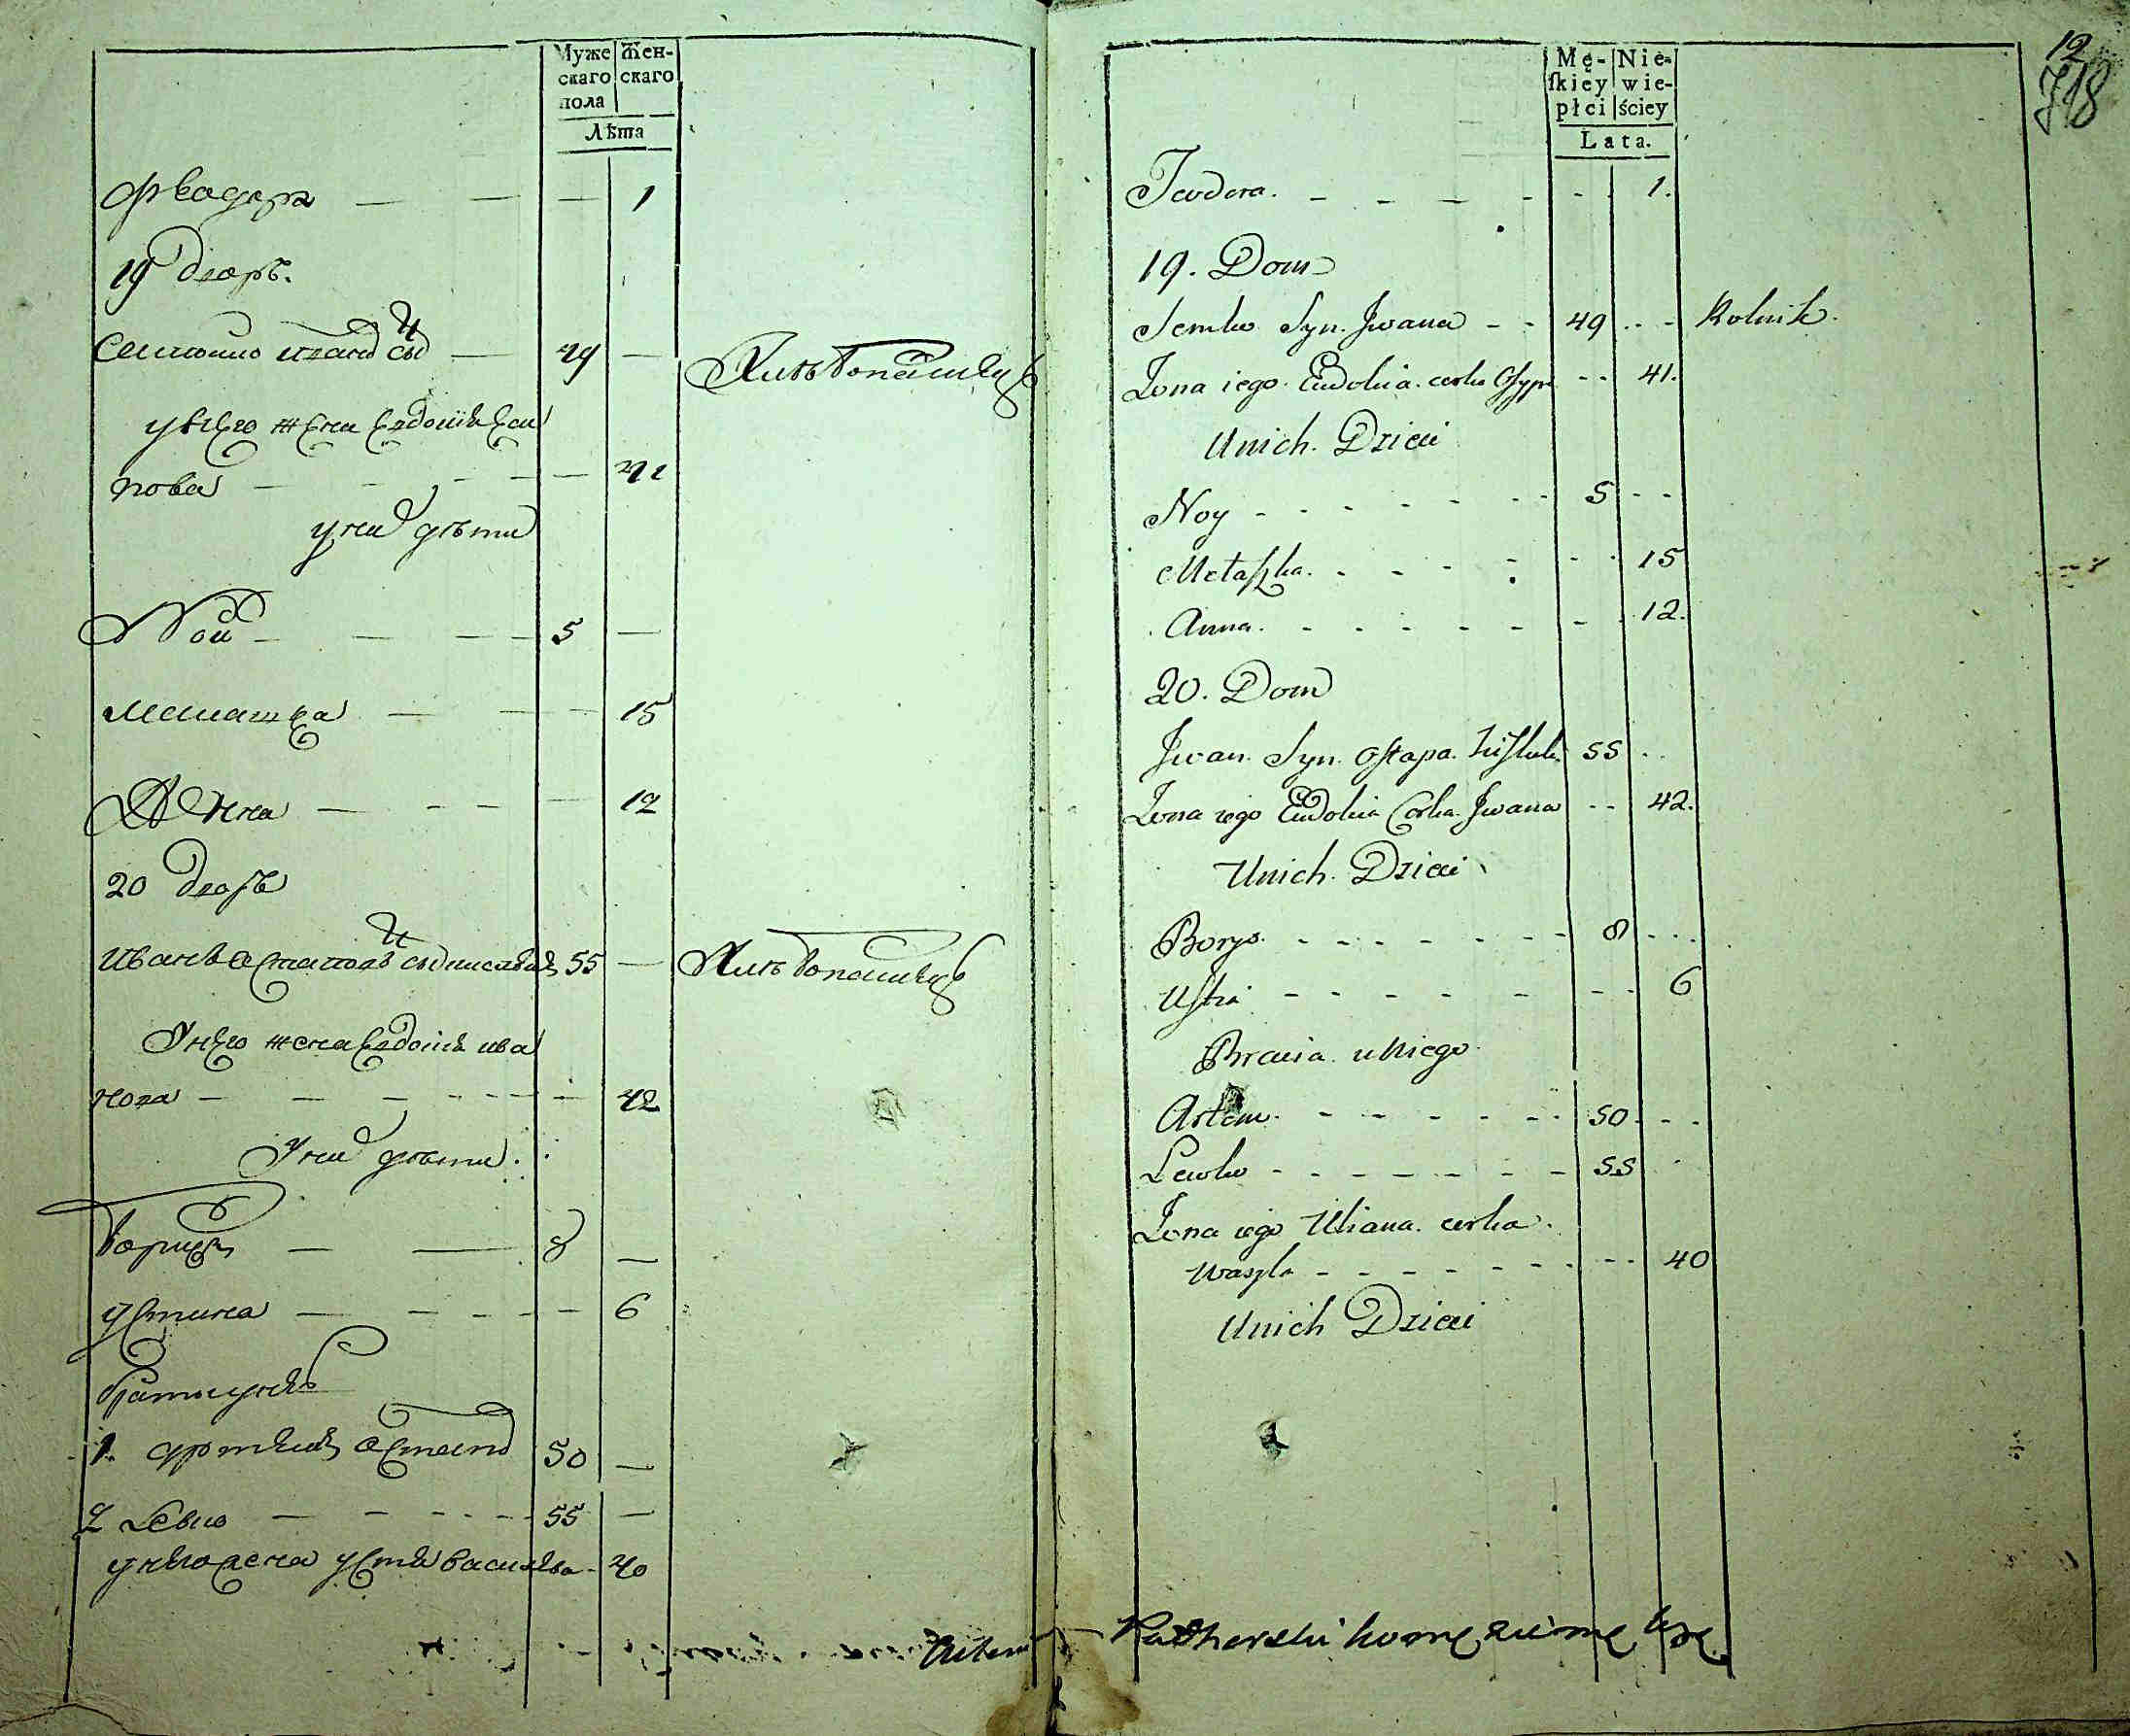 Муже Жен-
скаго скаго
пола
Лѣта
Фводора — — — 1
19 Дворъ.
49 —
Хлѣбопашецъ
у него жена Евдокия Еси
пова — 41
у них дѣти
Ной — — — 5 —
Меланка — — — 15
Анна — — — 12
20 Дворъ
Иванъ Остаповъ сын 55 — Хлѣбопашецъ
У него жена Евдокия Ива
нова — — — 42
У них дѣти.
Борисъ — — 8 —
Устина — — — 6
Братья у него
1. Остапов 50 —
2 Левко — — — 55 —
у него жена Васильева 40
12
718
Mę- Nie-
ſkiey wie-
płci ściey
Lata.
Teodora. - - - - - 1.
19. Dom
Semko Syn. Jwana - - 49 - - Rolnik.
Żona iego. Eudokia. corka Osypa - - 41.
Unich. Dzieci
Noy - - - - - - 5 - -
Metaſzka. - - - - - 15
Anna. - - - - - - 12.
20. Dom
Jwan. Syn. Oſtapa. 55 - -
Żona iego Eudokia Corka. Jwana - - 42.
Unich. Dzieci
Borys. - - - - - - 8 - - -
Uſtia - - - - - - - 6
Bracia. u Niego.
Artem. - - - - - - 50. - -
Lewko - - - - - - 55 -
Żona iego Uliana. corka.
Waszla - - - - - - - - 40
Unich Dzieci